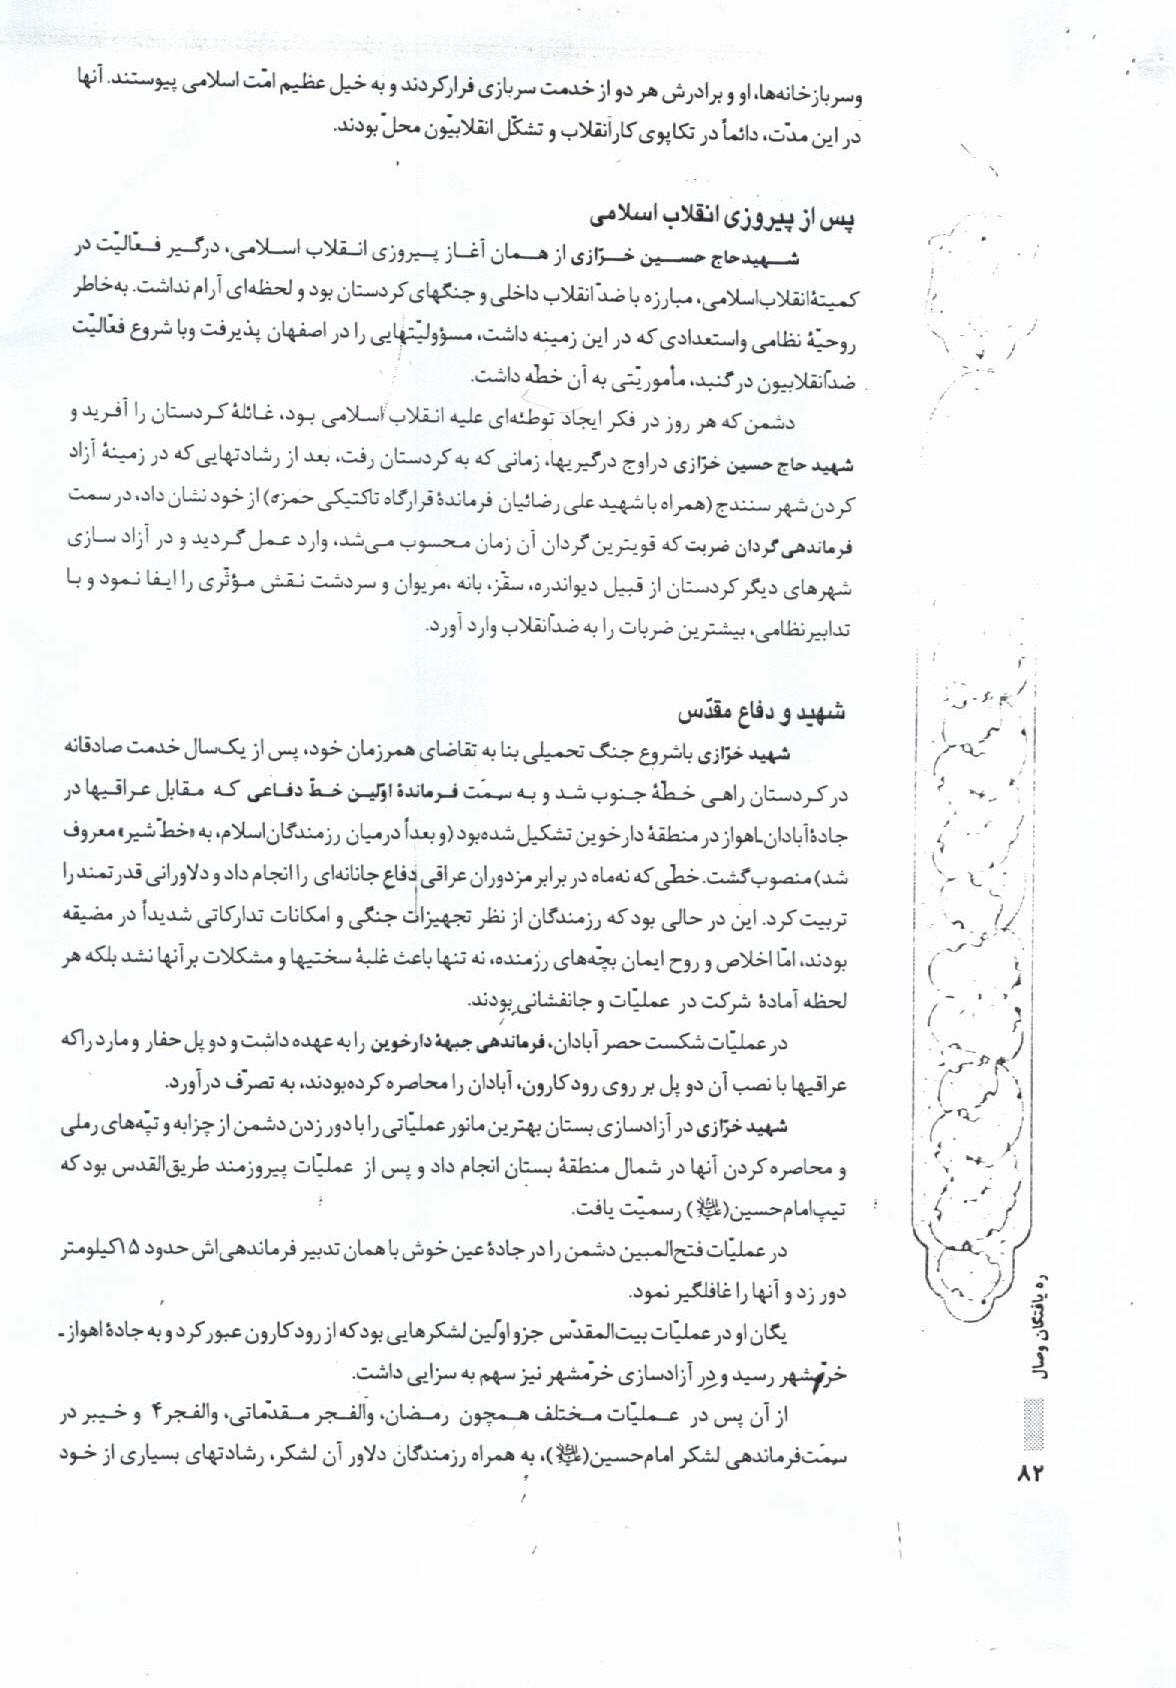 وسربازخانه‌ها، او و برادرش هر دو از خدمت سربازی فرارکردند و به خیل عظیم امّت اسلامی پیوستند. آنها
در این مدّت، دائماً در تکاپوی کار انقلاب و تشکّل انقلابیّون محلّ بودند.
پس از پیروزی انقلاب اسلامی
شهید حاج حسین خرّازی از همان آغاز پیروزی انقلاب اسلامی، درگیر فعّالیّت در
کمیتهٔ انقلاب‌اسلامی، مبارزه با ضدّ انقلاب داخلی و جنگهای کردستان بود و لحظه‌ای آرام نداشت. به‌خاطر
روحیّهٔ نظامی واستعدادی که در این زمینه داشت، مسؤولیّتهایی را در اصفهان پذیرفت وبا شروع فعّالیّت
ضدّانقلابیون در گنبد، مأموریّتی به آن خطّه داشت.
دشمن که هر روز در فکر ایجاد توطئه‌ای علیه انقلاب اسلامی بود، غائلهٔ کردستان را آفرید و
شهید حاج حسین خرّازی دراوج درگیریها، زمانی که به کردستان رفت، بعد از رشادتهایی که در زمینهٔ آزاد
کردن شهر سنندج (همراه با شهید علی رضائیان فرماندهٔ قرارگاه تاکتیکی حمزه) از خود نشان داد، در سمت
فرماندهی گردان ضربت که قویترین گردان آن زمان محسوب می‌شد، وارد عمل گردید و در آزاد سازی
شهرهای دیگر کردستان از قبیل دیواندره، سقّز، بانه ،مریوان و سردشت نقش مؤثّری را ایفا نمود و با
تدابیر نظامی، بیشترین ضربات را به ضدّانقلاب وارد آورد.
شهید و دفاع مقدّس
شهید خرّازی باشروع جنگ تحمیلی بنا به تقاضای همرزمان خود، پس از یک‌سال خدمت صادقانه
در کردستان راهی خطّهٔ جنوب شد و به سمّت فرماندهٔ اوّلین خطّ دفاعی که مقابل عراقیها در
جادهٔ آبادان-اهواز در منطقهٔ دارخوین تشکیل شده‌بود (و بعداً درمیان رزمندگان‌اسلام، به «خطّ شیر» معروف
شد) منصوب گشت. خطّی که نه‌ماه در برابر مزدوران عراقی دفاع جانانه‌ای را انجام داد و دلاورانی قدرتمند را
تربیت کرد. این در حالی بود که رزمندگان از نظر تجهیزات جنگی و امکانات تدارکاتی شدیداً در مضیقه
بودند، امّا اخلاص و روح ایمان بچّه‌های رزمنده، نه تنها باعث غلبهٔ سختیها و مشکلات بر آنها نشد بلکه هر
لحظه آمادهٔ شرکت در عملیّات و جانفشانی بودند.
در عملیّات شکست حصر آبادان، فرماندهی جبههٔ دارخوین را به عهده داشت و دو پل حفار و مارد راکه
عراقیها با نصب آن دو پل بر روی رود کارون، آبادان را محاصره کرده‌بودند، به تصرّف درآورد.
شهید خرّازی در آزادسازی بستان بهترین مانور عملیّاتی را با دور زدن دشمن از چزابه و تپّه‌های رملی
و محاصره کردن آنها در شمال منطقهٔ بستان انجام داد و پس از عملیّات پیروزمند طریق‌القدس بود که
تیپ امام‌حسین(علیه‌السلام) رسمیّت یافت.
در عملیّات فتح‌المبین دشمن را در جادهٔ عین خوش با همان تدبیر فرماندهی‌اش حدود ۱۵کیلومتر
دور زد و آنها را غافلگیر نمود.
یگان او در عملیّات بیت‌المقدّس جزو اوّلین لشکرهایی بود که از رود کارون عبور کرد و به جادهٔ اهواز ـ
خرّمشهر رسید و در آزادسازی خرّمشهر نیز سهم به سزایی داشت.
از آن پس در عملیّات مختلف همچون رمضان، والفجر مقدّماتی، والفجر۴ و خیبر در
سمّت‌فرماندهی لشکر امام‌حسین(علیه‌السلام)، به همراه رزمندگان دلاور آن لشکر، رشادتهای بسیاری از خود
ره یافتگان وصال
۸۲